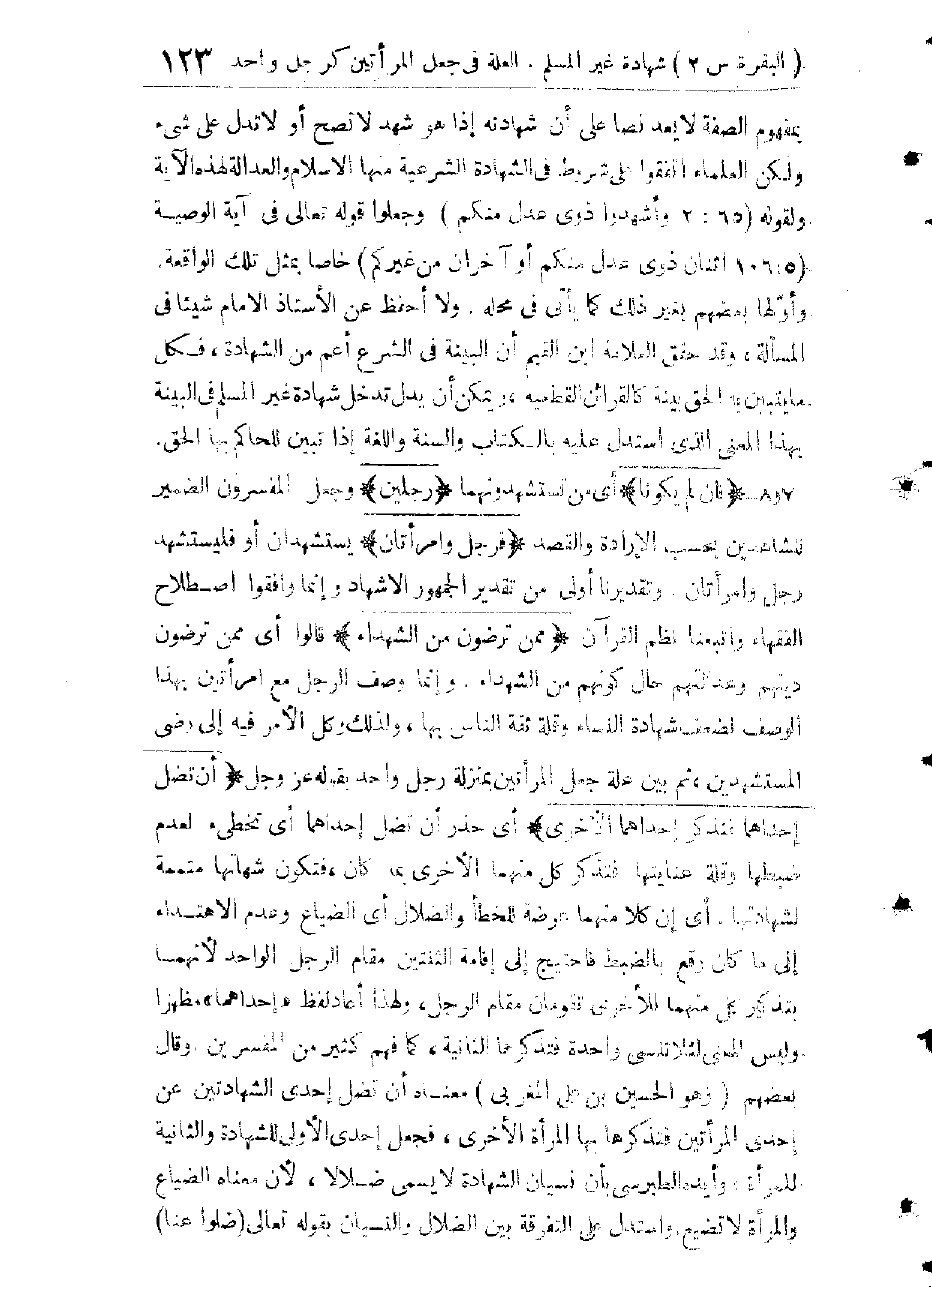 ( البقرة س ٢ ) شهادة غير المسلم . العلة فى جعل المرأتين كرجل واحد ١٢٣
بمفهوم الصفة لا يعد نصا على أن شهادته إذا هو شهد لا تصح أو لا تدل على شىء
ولكن العلماء اتفقوا على شروط فى الشهادة الشرعية منها الاسلام والعدالة لهذه الآية
ولقوله (٦٥ : ٢ وأشهدوا ذوى عدل منكم ) وجعلوا قوله تعالى فى آية الوصيـة
(١٠٦:٥ اثنان ذوى عدل منكم أو آخران من غيركم ) خاصا بمثل تلك الواقعة.
وأوّلها بعضهم بغير ذلك كما يأتى فى محله . ولا أحفظ عن الأستاذ الامام شيئا فى
المسألة ، وقد حقق العلامة ابن القيم أن البينة فى الشرع أعم من الشهادة ، فـكل
ما يتبين به الحق بينة كالقرائن القطعية ، ويمكن أن يدل تدخل شهادة غير المسلم فى البينة
بهذا المعنى الذى استدل عليه بالـكتاب والسنة واللغة إذا تبين للحاكم بها الحق.
٧و٨ـ ﴿ فان لم يكونا ﴾ أى من تستشهدونهما ﴿ رجلين ﴾ وجعل المفسرون الضمير
للشاهدين بحسب الإرادة والقصد ﴿ فرجل وامرأتان ﴾ يستشهدان أو فليستشهد
رجل وامرأتان . وتقديرنا أولى من تقدير الجمهور الاشهاد وإنما وافقوا اصـطلاح
الفقهاء واتبعنا نظم القرآن ﴿ ممن ترضون من الشهداء ﴾ قالوا أى ممن ترضون
دينهم وعدالتهم حال كونهم من الشهداء . وإنما وصف الرجل مع امرأتين بهذا
الوصف لضعف شهادة النساء وقلة ثقة الناس بها ، ولذلك وكل الأمر فيه إلى رضى
المستشهدين ، ثم بين علة جعل المرأتين بمنزلة رجل واحد بقوله عز وجل ﴿ أن تضل
إحداهما فتذكر إحداهما الأخرى ﴾ أى حذر أن تضل إحداهما أى تخطىء لعدم
ضبطها وقلة عنايتها فتذكر كل منهما الأخرى بما كان ، فتكون شهادتها متممة
لشهادتها . أى إن كلا منهما عرضة للخطأ والضلال أى الضياع وعدم الاهتـداء
إلى ما كان وقع بالضبط فاحتيج إلى إقامة الثنتين مقام الرجل الواحد لأنهمـا
بتذكير كل منهما للأخرى تقومان مقام الرجل ، ولهذا أعاد لفظ «إحداهما» مظهرا
وليس المعنى لئلا تنسى واحدة فتذكرها الثانية ، كما فهم كثير من المفسرين . وقال
بعضهم ( وهو الحسين بن على المغربى ) معنـاه أن تضل إحدى الشهادتين عن
إحدى المرأتين فتذكرها بها المرأة الأخرى ، فجعل إحدى الأولى للشهادة والثانية
للمرأة . وأيده الطبرسى بأن نسيان الشهادة لا يسمى ضـلالا ، لأن معناه الضياع
والمرأة لا تضيع. واستدل على التفرقة بين الضلال والنسيان بقوله تعالى (ضلوا عنا)